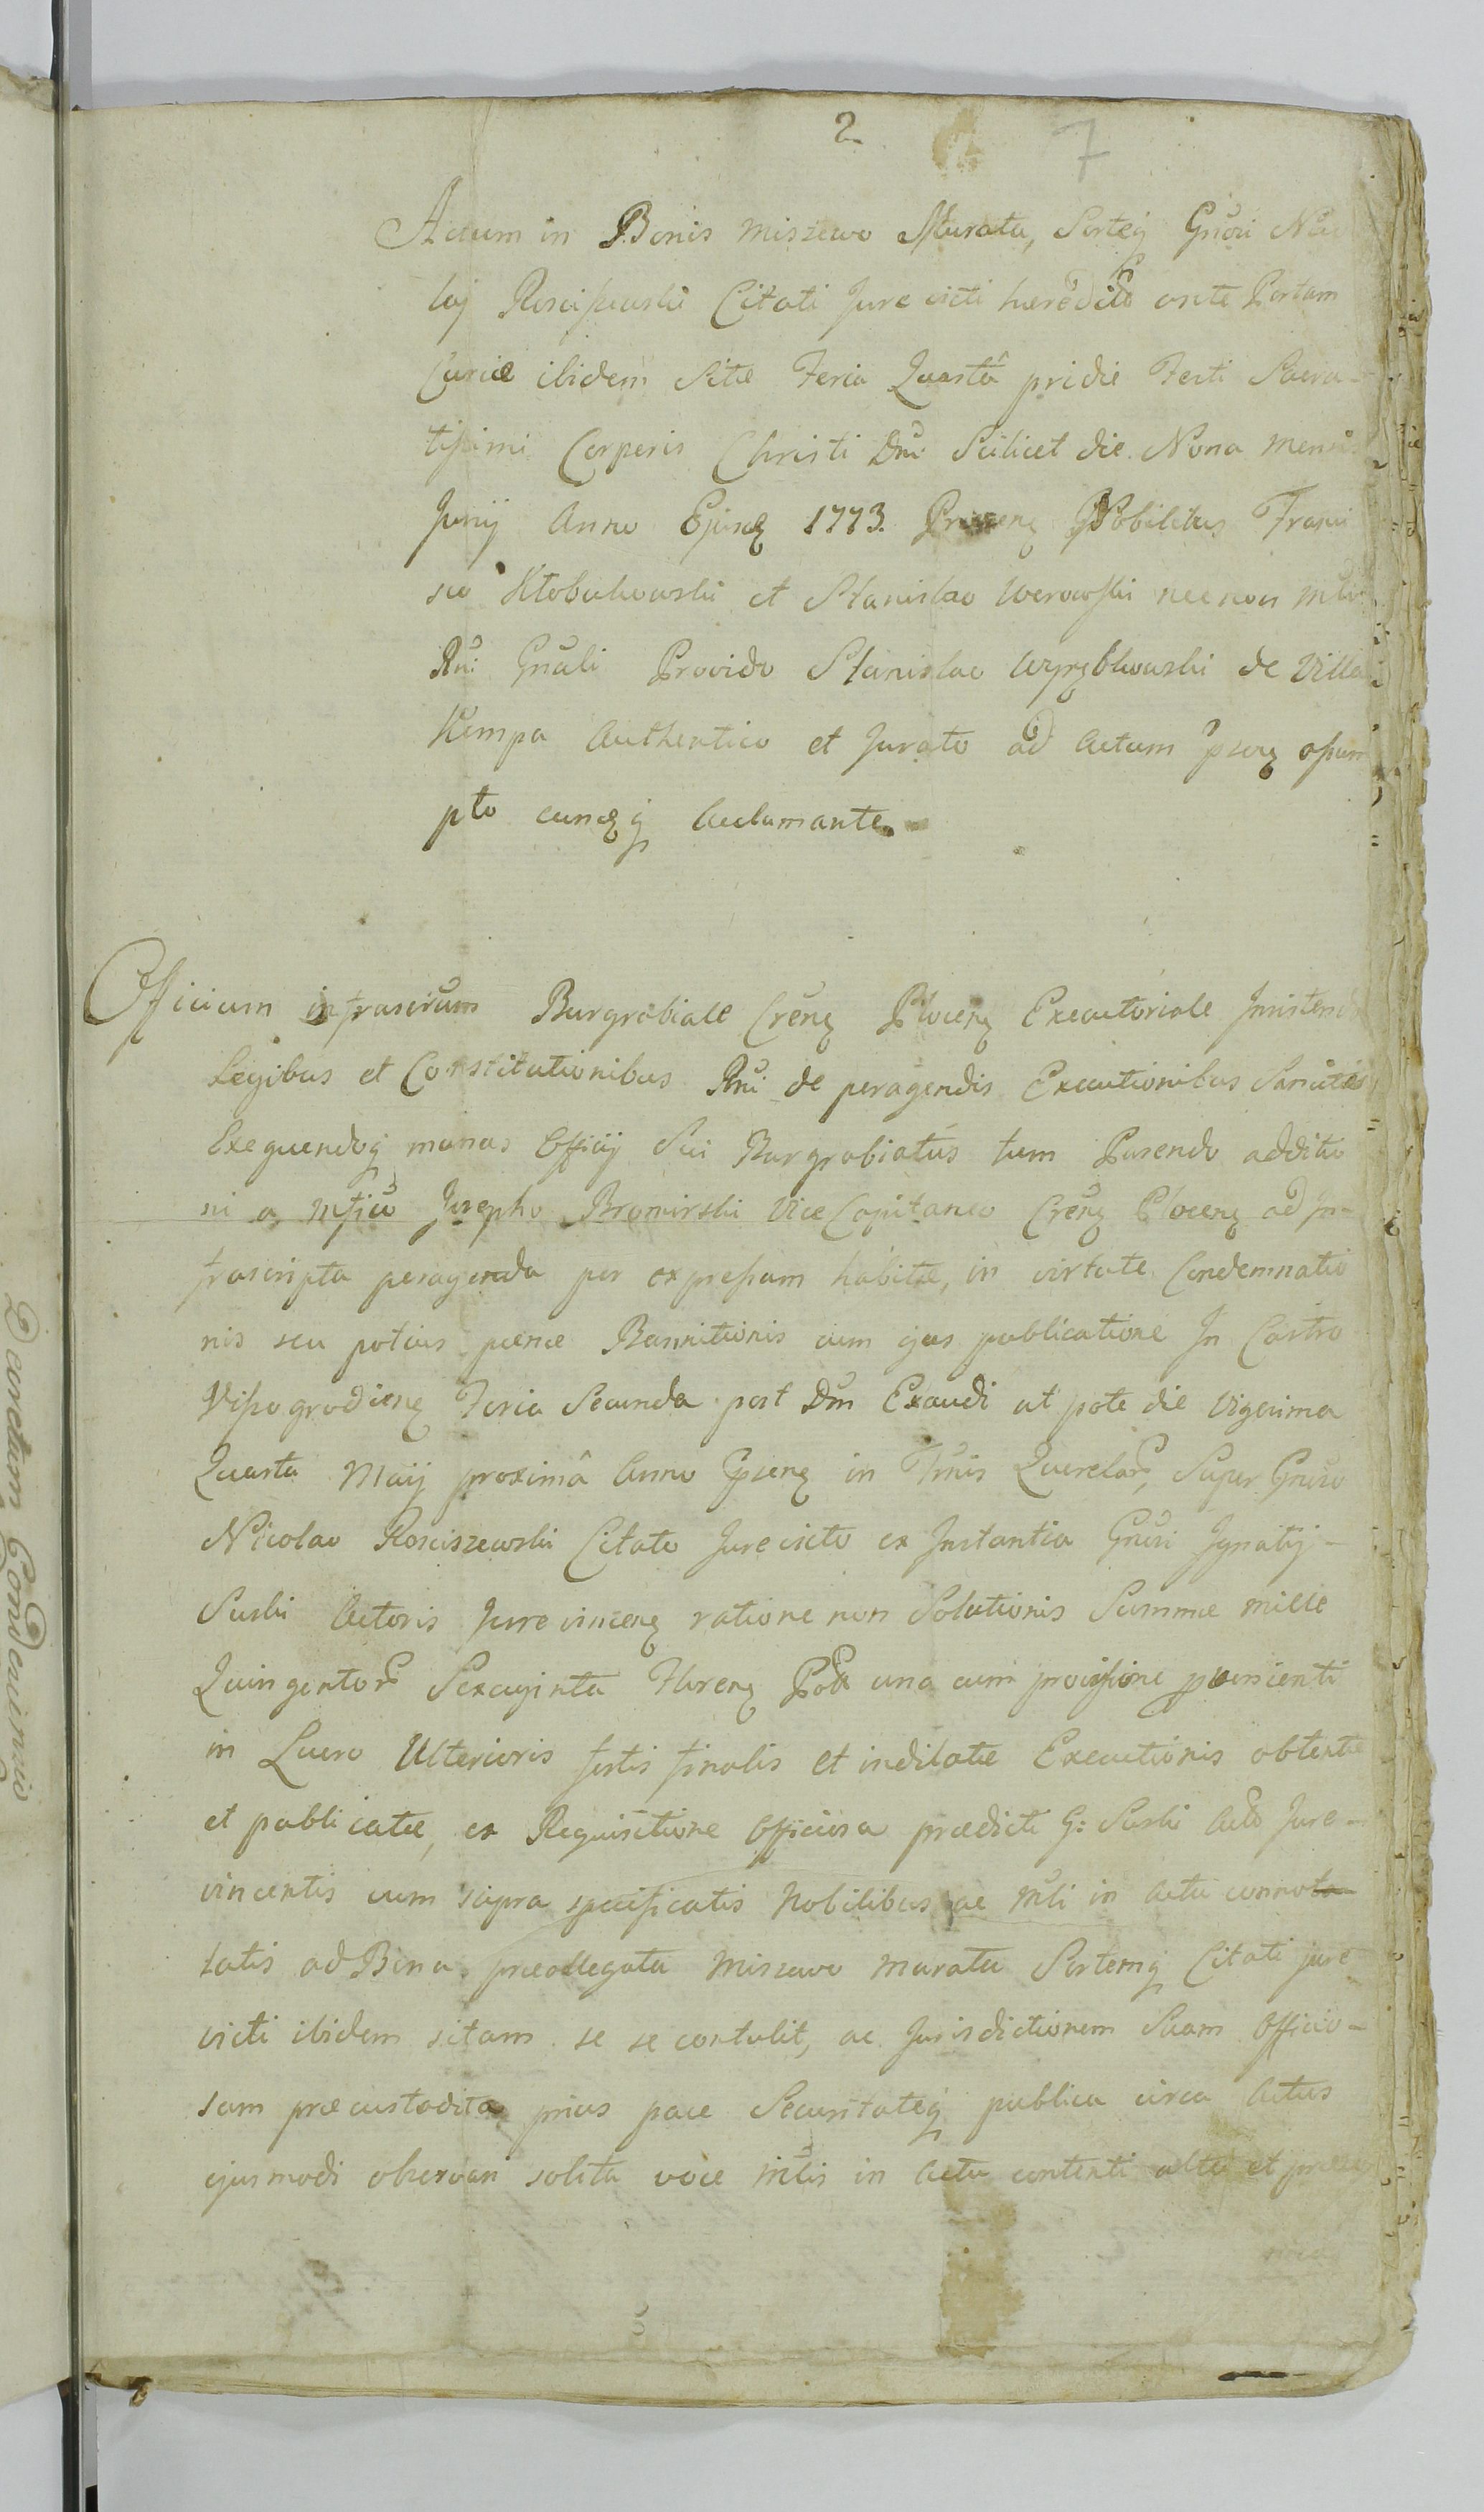 2 7
Actum in Bonis Miszewo Murata, Sorteq Gnosi Nico
laj Rosciszewski Citati Jure victi haeredit ante Portam
Curiae ibidem Sitae Feria Quarta pridie Festi Sacra-
tissimi Corporis Christi Dni Scilicet die Nona Mensis
Junij Anno Ejusq 1773. Praesenq Nobilibus Franci
sco Kłobukowski et Stanislao Werowski necnon Mli
Rni Gnali Provido Stanislao Wyrębkowski de Villa
Kempa Authentico et Jurato ad Actum psenq assum
pto eumq Acclamante.
Officium infrascrum Burgrabiale Crenq Plocenq Executoriale Insistendo
Legibus et Constitutionibus Rni de peragendis Executionibus Sancitis
Exequendoq munus Officij Sui Burgrabiatus tum Parendo additio
ni a Mfico Josepho Bromirski Vice Capitaneo Crenq Plocenq ad In-
frascripta peragenda per expressum habitae, in virtute Condemnatio
nis seu potius paenae Bannitionis cum ejus publicatione In Castro
Vissogrodienq Feria Secunda post Dm Exaudi ut pote die Vigesima
Quarta Maij proxima Anno psenq in Tmis Querelar, Super Gnoso
Nicolao Rosciszewski Citato Jure victo ex Instantia Gnosi Ignatij
Suski Actoris Jure vincenq ratione non Solutionis Summae mille
Quingentor Sexaginta Florenq Pol una cum provisione provenienti
in Lucro Ulterioris fortis finalis et indilatae Executionis obtentae
et publicatae, ex Requisitione Officiosa praedicti G: Suski Act Jure-
vincentis cum supra specificatis Nobilibus ac Mli in Actu connota
tatis ad Bona praeallegata Miszewo Murata Sortemq Citati jure
victi ibidem sitam se se contulit, ac Jurisdictionem Suam Officio-
sam praecustodita prius pace Securitateq publica circa Actus
ejusmodi observari solita voce Mlis in Actu contenti alta et
Decretum Condescensio